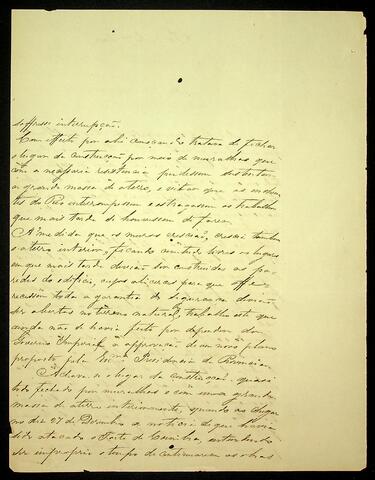 soffresse interrupção.
Com effeito por ahi começando tratava de fechar
o lugar da construcção por meio de muralhas que
com a necessaria resistencia pudessem sustentar
a grande massa de aterro, e evitar que as enchen-
tes do Rio interrompessem e estragassem os trabalhos
que mais tarde se houvessem de fazer.
A' medida que os muros crescião, crescia tambem
o aterro interior, ficando livres os lugares
em que mais tarde devião ser construidas as pa-
redes do edificio, cujos alicerces para que offe-
recessem toda a garantia de segurança devião
ser abertos no terreno natural, trabalho este que
ainda não se havia feito por depender do
Governo Imperial a approvação de um novo plano
proposto pela Ex.ma Presidencia da Provincia.
Achava-se o lugar da construcção quasi
todo fechado por muralhas e com uma grande
massa de aterro interiormente, quando ao chegar
no dia de Dezembro a noticia de que havia
sido atacado o Forte de Coimbra, entendendo
ser improprio o tempo de continuarem as obras